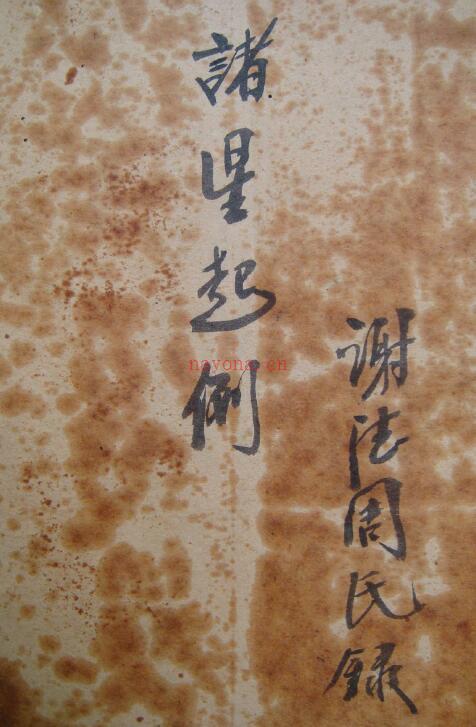 諸星起例
謝德周氏錄
nayona.cn